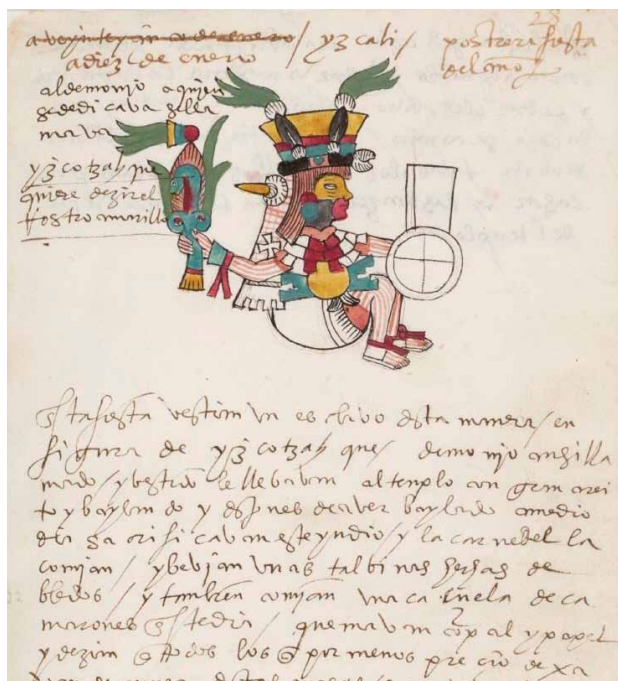 a veynte y un de enero / yzcali / postrera fiesta
a diez de enero del año
28
al demonjo a quien
se dedicava se lla
mava
yzcotzauhque
quiere dezir el
rostro amarillo
esta fiesta vestian un esclavo desta manera / en
figura de yzcotzauhque / demonjo ansi lla
mado / y vestido le llevavan al templo con gran arei
to y baylando y despues de aver baylado a medio
dia sacrificavan este yndio / y la carne del la
comjan / y bevian unas talvinas hechas de
bledos / y tambien comjan una caçuela de ca
marones este dia / quemavan copal y papel
y dezian q̃ todos los q̃ por menos precio dexa